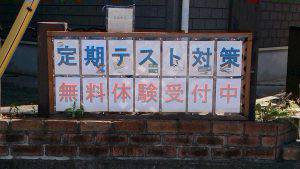 定期テスト対策
無料体験受付中